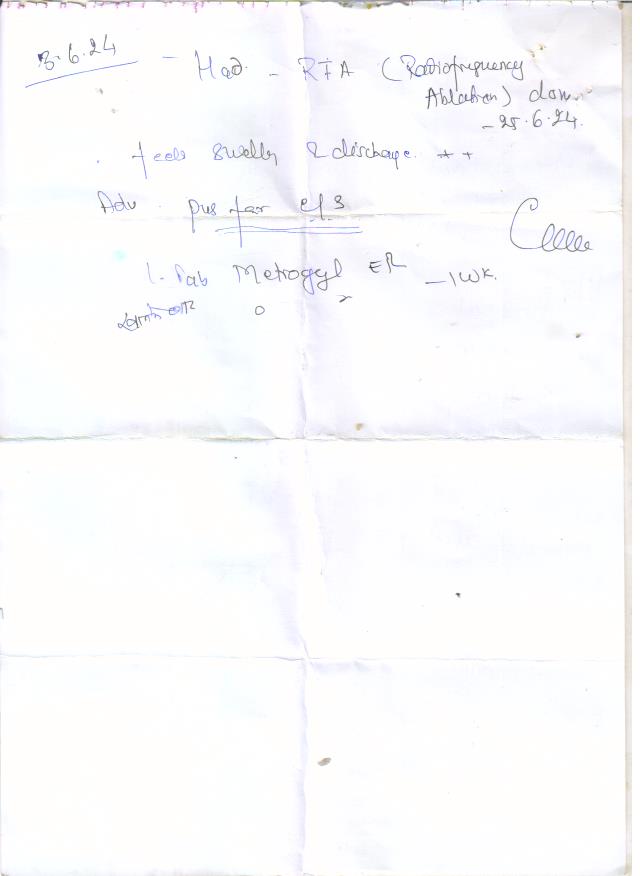 3.6.24 - Had - RFA (Radiofrequency
Ablation) don
- 25.6.24.
. feels swelly & discharge ++
Adv. pus for c/s
1. Tab Metrogyl ER - 1 wk.